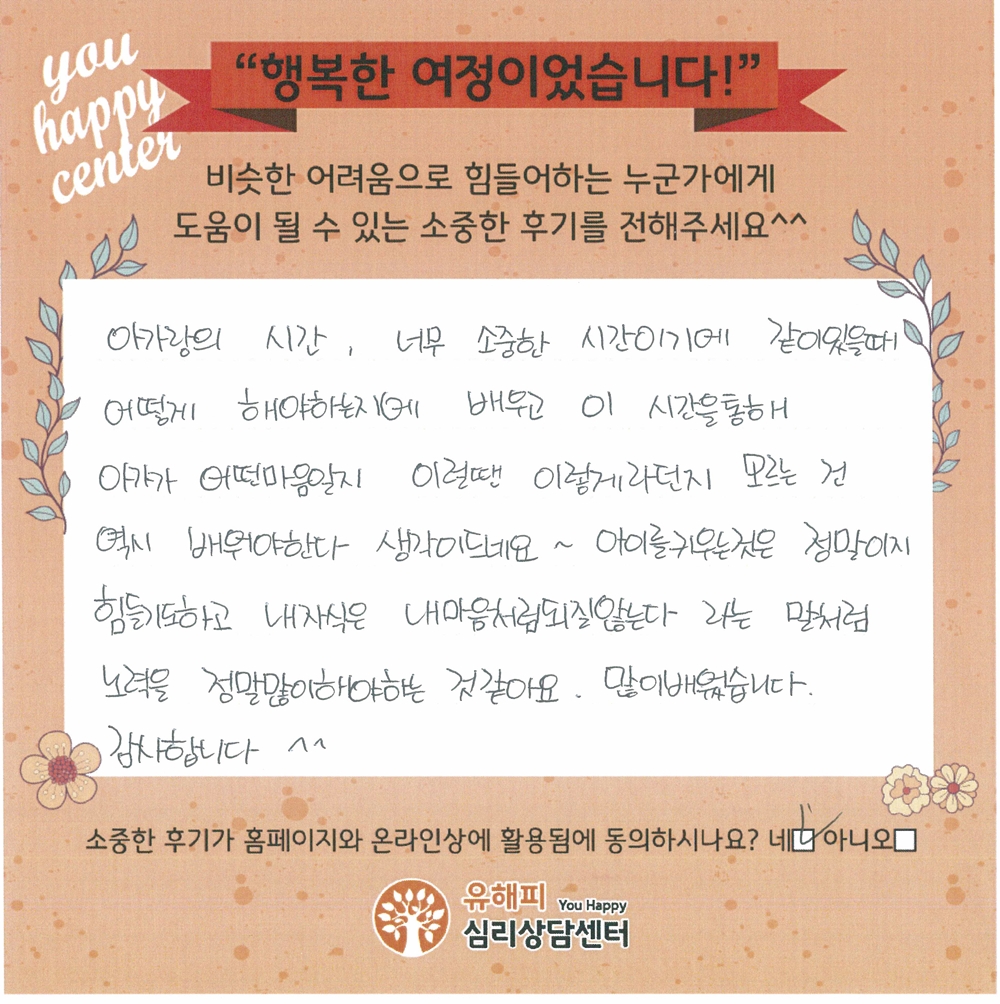 you
happy
center
“행복한 여정이었습니다!”
비슷한 어려움으로 힘들어하는 누군가에게
도움이 될 수 있는 소중한 후기를 전해주세요^^
아가랑의 시간, 너무 소중한 시간이기에 같이있을때
어떻게 해야하는지에 배우고 이 시간을통해
아가가 어떤마음일지 이럴땐 이렇게라던지 모르는 건
역시 배워야한다 생각이드네요 ~ 아이를키우는것은 정말이지
힘들기도하고 내자식은 내마음처럼되질않는다 라는 말처럼
노력을 정말많이해야하는 것같아요. 많이배웠습니다.
감사합니다 ^^
소중한 후기가 홈페이지와 온라인상에 활용됨에 동의하시나요? 네 아니오
유해피 You Happy
심리상담센터